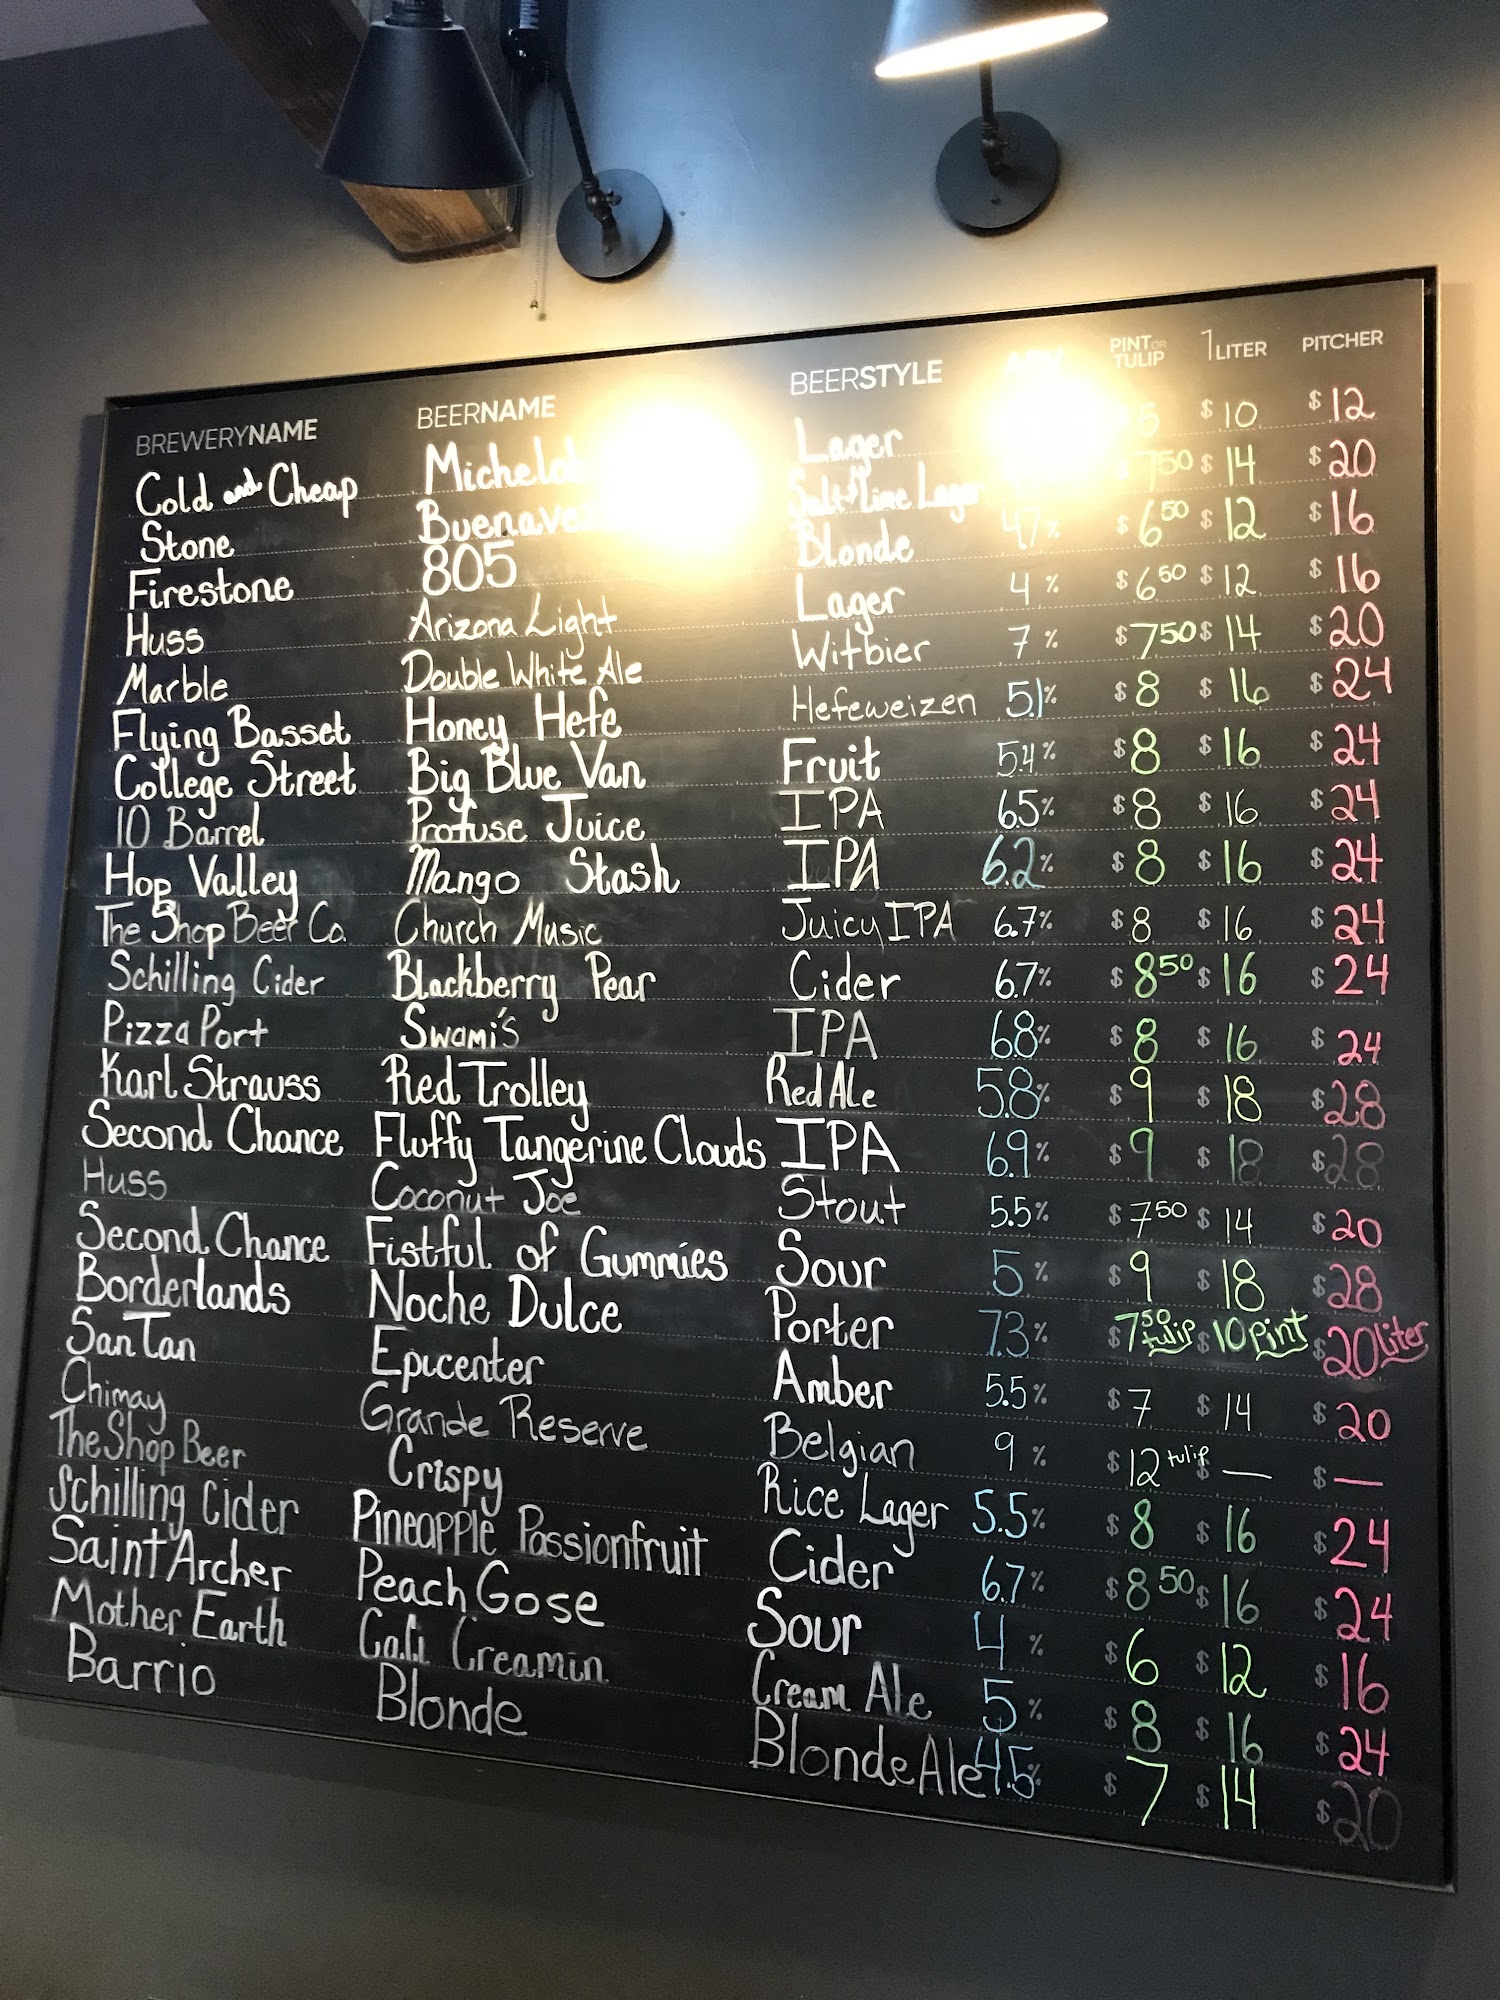 BREWERYNAME BEERNAME BEERSTYLE PINT OR TULIP 1 LITER PITCHER
Cold and Cheap Lager 5 $10 $12
Stone Salt & Lime Lager 7 50 $14 $20
Firestone 805 Blonde 4.7% $6 50 $12 $16
Huss Arizona Light Lager 4% $6 50 $12 $16
Marble Double White Ale Witbier 7% $7 50 $14 $20
Flying Basset Honey Hefe Hefeweizen 5.1% $8 $16 $24
College Street Big Blue Van Fruit 5.4% $8 $16 $24
10 Barrel Profuse Juice IPA 6.5% $8 $16 $24
Hop Valley Mango Stash IPA 6.2% $8 $16 $24
The Shop Beer Co. Church Music Juicy IPA 6.7% $8 $16 $24
Schilling Cider Blackberry Pear Cider 6.7% $8 50 $16 $24
Pizza Port Swami's IPA 6.8% $8 $16 $24
Karl Strauss Red Trolley Red Ale 5.8% $9 $18 $28
Second Chance Fluffy Tangerine Clouds IPA 6.9% $9 $18 $28
Huss Coconut Joe Stout 5.5% $7 50 $14 $20
Second Chance Fistful of Gummies Sour 5% $9 $18 $28
Borderlands Noche Dulce Porter 7.3% $7 50 tulip $10 pint $20 liter
SanTan Epicenter Amber 5.5% $7 $14 $20
Chimay Grande Reserve Belgian 9% $12 tulip $ — $ —
The Shop Beer Crispy Rice Lager 5.5% $8 $16 $24
Schilling Cider Pineapple Passionfruit Cider 6.7% $8 50 $16 $24
Saint Archer Peach Gose Sour 4% $6 $12 $16
Mother Earth Cali Creamin Cream Ale 5% $8 $16 $24
Barrio Blonde Blonde Ale 4.5% $7 $14 $20